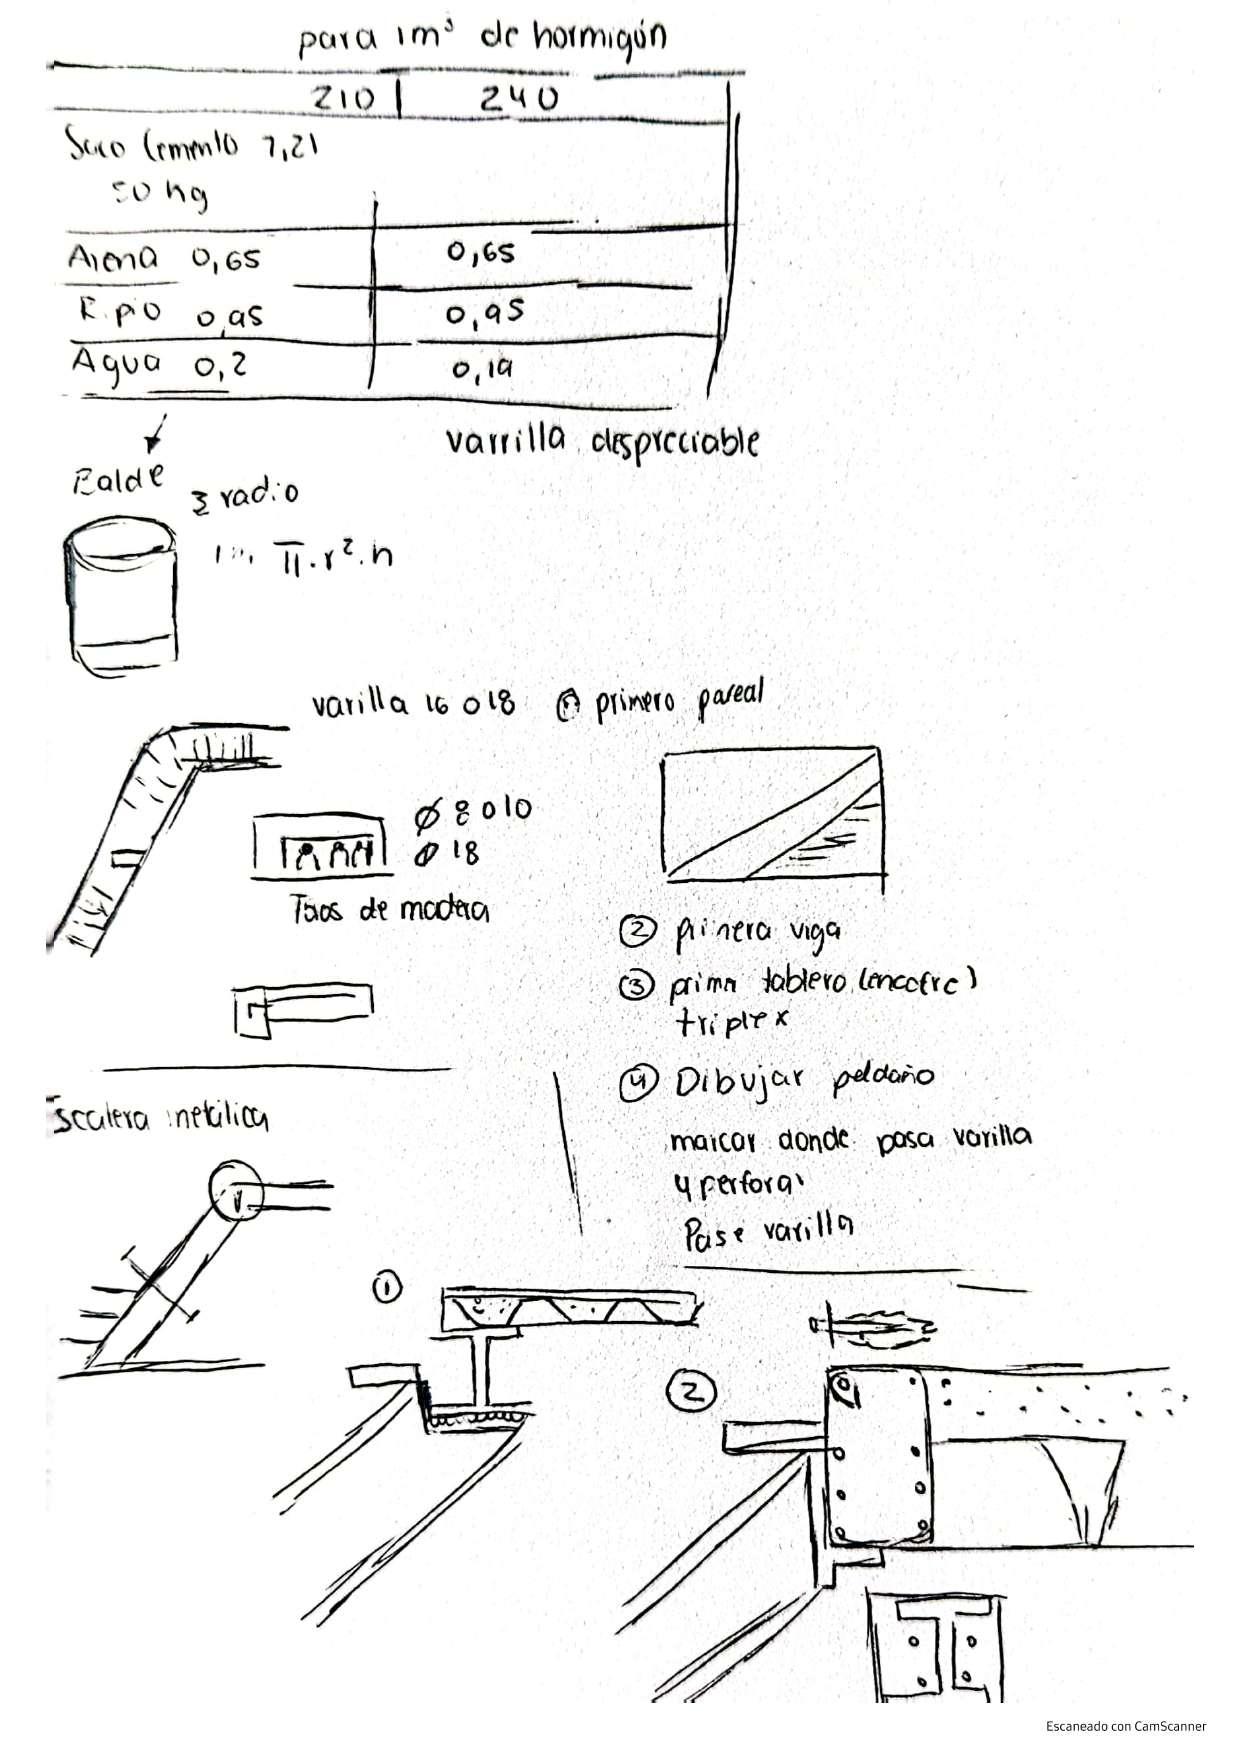 para 1m³ de hormigón
210 | 240
Saco Cemento 7,21
50 kg
Arena 0,65 0,65
Ripio 0,95 0,95
Agua 0,2 0,19
varrilla despreciable
Balde
radio
π.r².h
varilla 16 o 18 primero pareal
Ø 8 o 10
Ø 18
de madera
② primera viga
③ tablero (encofre)
triplex
④ Dibujar peldaño
marcar donde pasa varilla
y perforar
Pase varilla
Escalera metálica
①
②
Escaneado con CamScanner